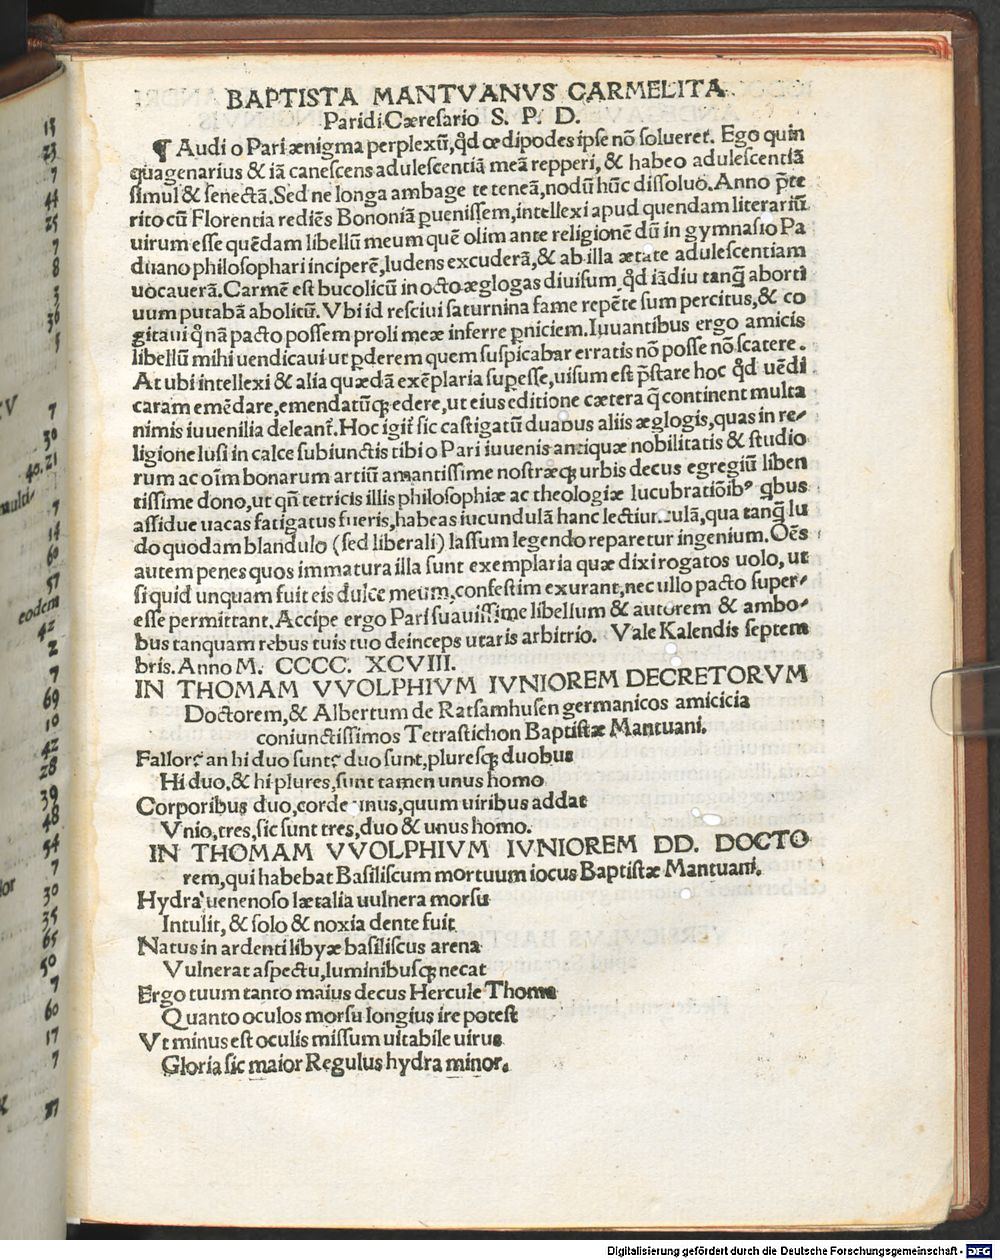 BAPTISTA MANTVANVS CARMELITA
Paridi Cæresario S. P. D.
¶ Audi o Pari ænigma perplexũ, qđ œdipodes ipse nõ solueret. Ego quin
quagenarius & iã canescens adulescentiã meã repperi, & habeo adulescentiã
simul & senectã. Sed ne longa ambage te teneã, nodũ hũc dissoluo. Anno p̃te
rito cũ Florentia rediẽs Bononiã ꝑuenissem, intellexi apud quendam literariũ
uirum esse quẽdam libellũ meum quẽ olim ante religionẽ dũ in gymnasio Pa
duano philosophari inciperẽ, ludens excuderã, & ab illa ætate adulescentiam
uocauerã. Carmẽ est bucolicũ in octo æglogas diuisum, qđ iãdiu tanq̃ aborti
uum putabã abolitũ. Vbi id resciui saturnina fame repẽte sum percitus, & co
gitaui q̃nã pacto possem proli meæ inferre ꝑniciem. Iuuantibus ergo amicis
libellũ mihi uendicaui ut ꝑderem quem suspicabar erratis nõ posse nõ scatere.
At ubi intellexi & alia quædã exẽplaria supesse, uisum est p̃stare hoc qđ uẽdi
caram emẽdare, emendatũqꝫ edere, ut eius editione cætera q̃ continent multa
nimis iuuenilia deleant̃. Hoc igit̃ sic castigatũ duabus aliis æglogis, quas in re⸗
ligione lusi in calce subiunctis tibi o Pari iuuenis antiquæ nobilitatis & studio
rum ac oĩm bonarum artiũ amantissime nostræqꝫ urbis decus egregiũ liben
tissime dono, ut qñ tetricis illis philosophiæ ac theologiæ lucubratiõibꝰ q̃bus
assidue uacas fatigatus fueris, habeas iucundulã hanc lectiunculã, qua tanq̃ lu
do quodam blandulo (sed liberali) lassum legendo reparetur ingenium. Oẽs
autem penes quos immatura illa sunt exemplaria quæ dixi rogatos uolo, ut
si quid unquam fuit eis dulce meum, confestim exurant, nec ullo pacto super⸗
esse permittant. Accipe ergo Pari suauissime libellum & autorem & ambo⸗
bus tanquam rebus tuis tuo deinceps utaris arbitrio. Vale Kalendis septem
bris. Anno M. CCCC. XCVIII.
IN THOMAM VVOLPHIVM IVNIOREM DECRETORVM
Doctorem, & Albertum de Ratsamhusen germanicos amicicia
coniunctissimos Tetrastichon Baptistæ Mantuani.
Fallor? an hi duo sunt? duo sunt, pluresqꝫ duobus
Hi duo, & hi plures, sunt tamen unus homo
Corporibus duo, corde unus, quum uiribus addat
Vnio, tres, sic sunt tres, duo & unus homo.
IN THOMAM VVOLPHIVM IVNIOREM DD. DOCTO
rem, qui habebat Basiliscum mortuum iocus Baptistæ Mantuani.
Hydra uenenoso lætalia uulnera morsu
Intulit, & solo & noxia dente fuit
Natus in ardenti libyæ basiliscus arena
Vulnerat aspectu, luminibusqꝫ necat
Ergo tuum tanto maius decus Hercule Thoma
Quanto oculos morsu longius ire potest
Vt minus est oculis missum uitabile uirus
Gloria sic maior Regulus hydra minor.
13
23
7
44
25
7
8
3
36
5
XV
7
30
40. 21
multi⸗
7
14
60
57
eodem
42
2
7
69
10
42
28
39
48
54
7
30
35
65
50
7
60
17
7
27
Digitalisierung gefördert durch die Deutsche Forschungsgemeinschaft - DFG